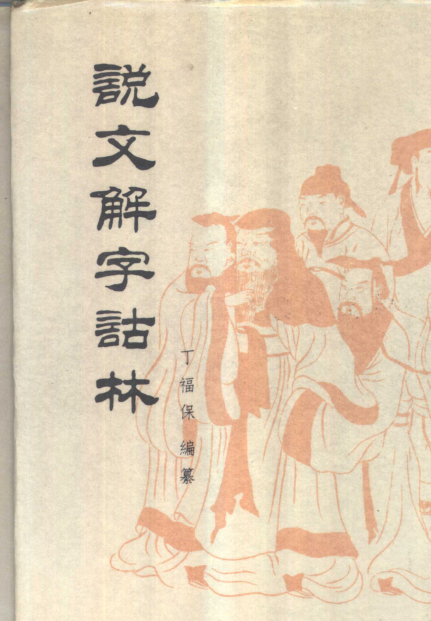 說文解字詁林
丁福保編纂